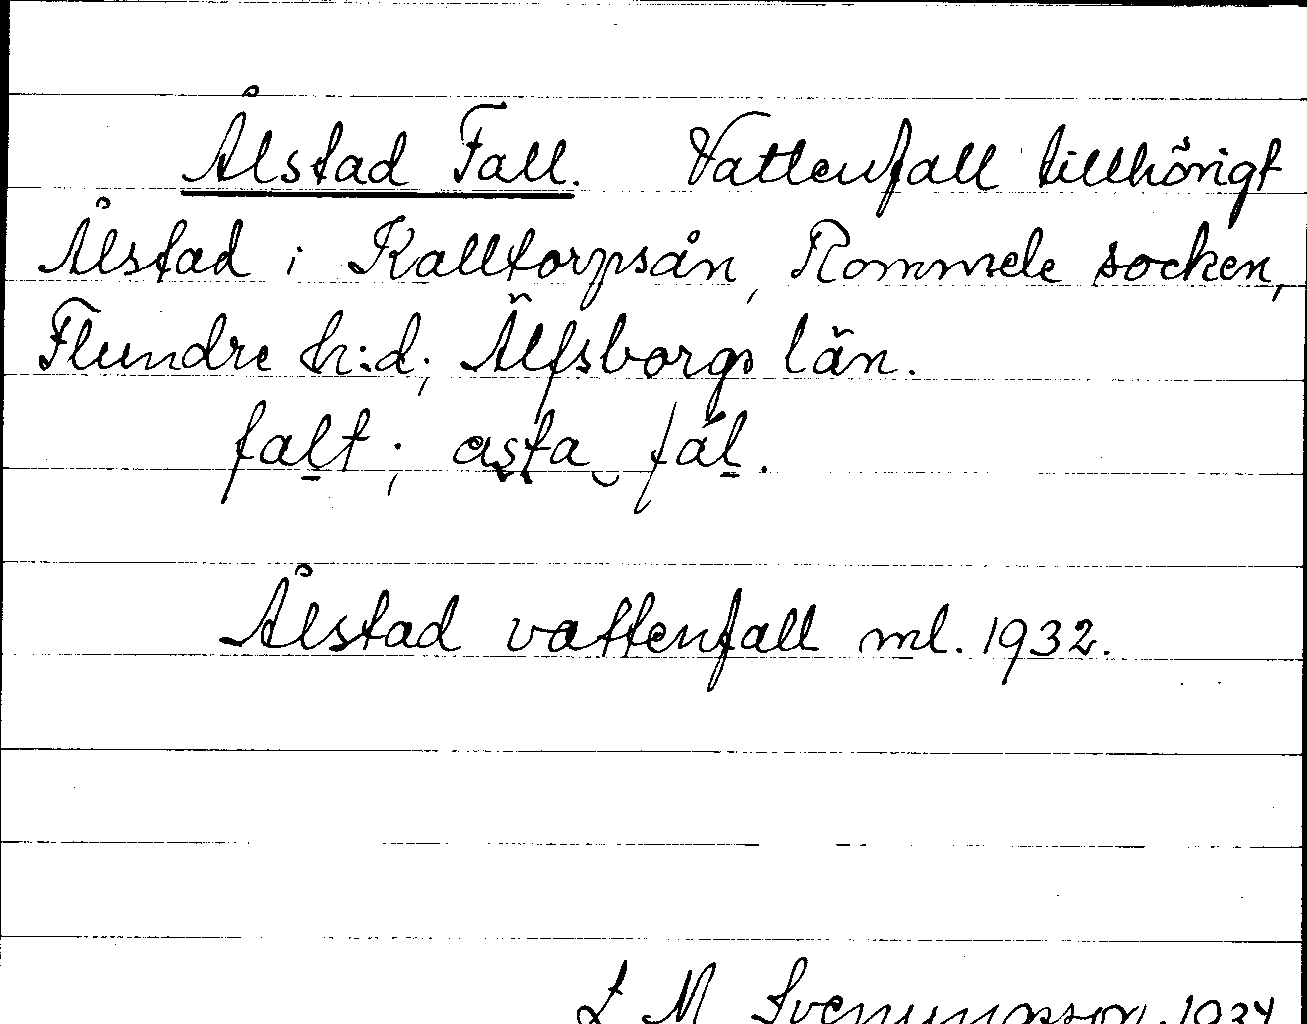 Ålstad Fall. Vattenfall tillhörigt
Ålstad i Kalltorpsån, Rommele socken,
Flundre h:d; Älfsborgs län.
falt; asta fal.
Ålstad vattenfall ml. 1932.
L M Svenungsson. 1934